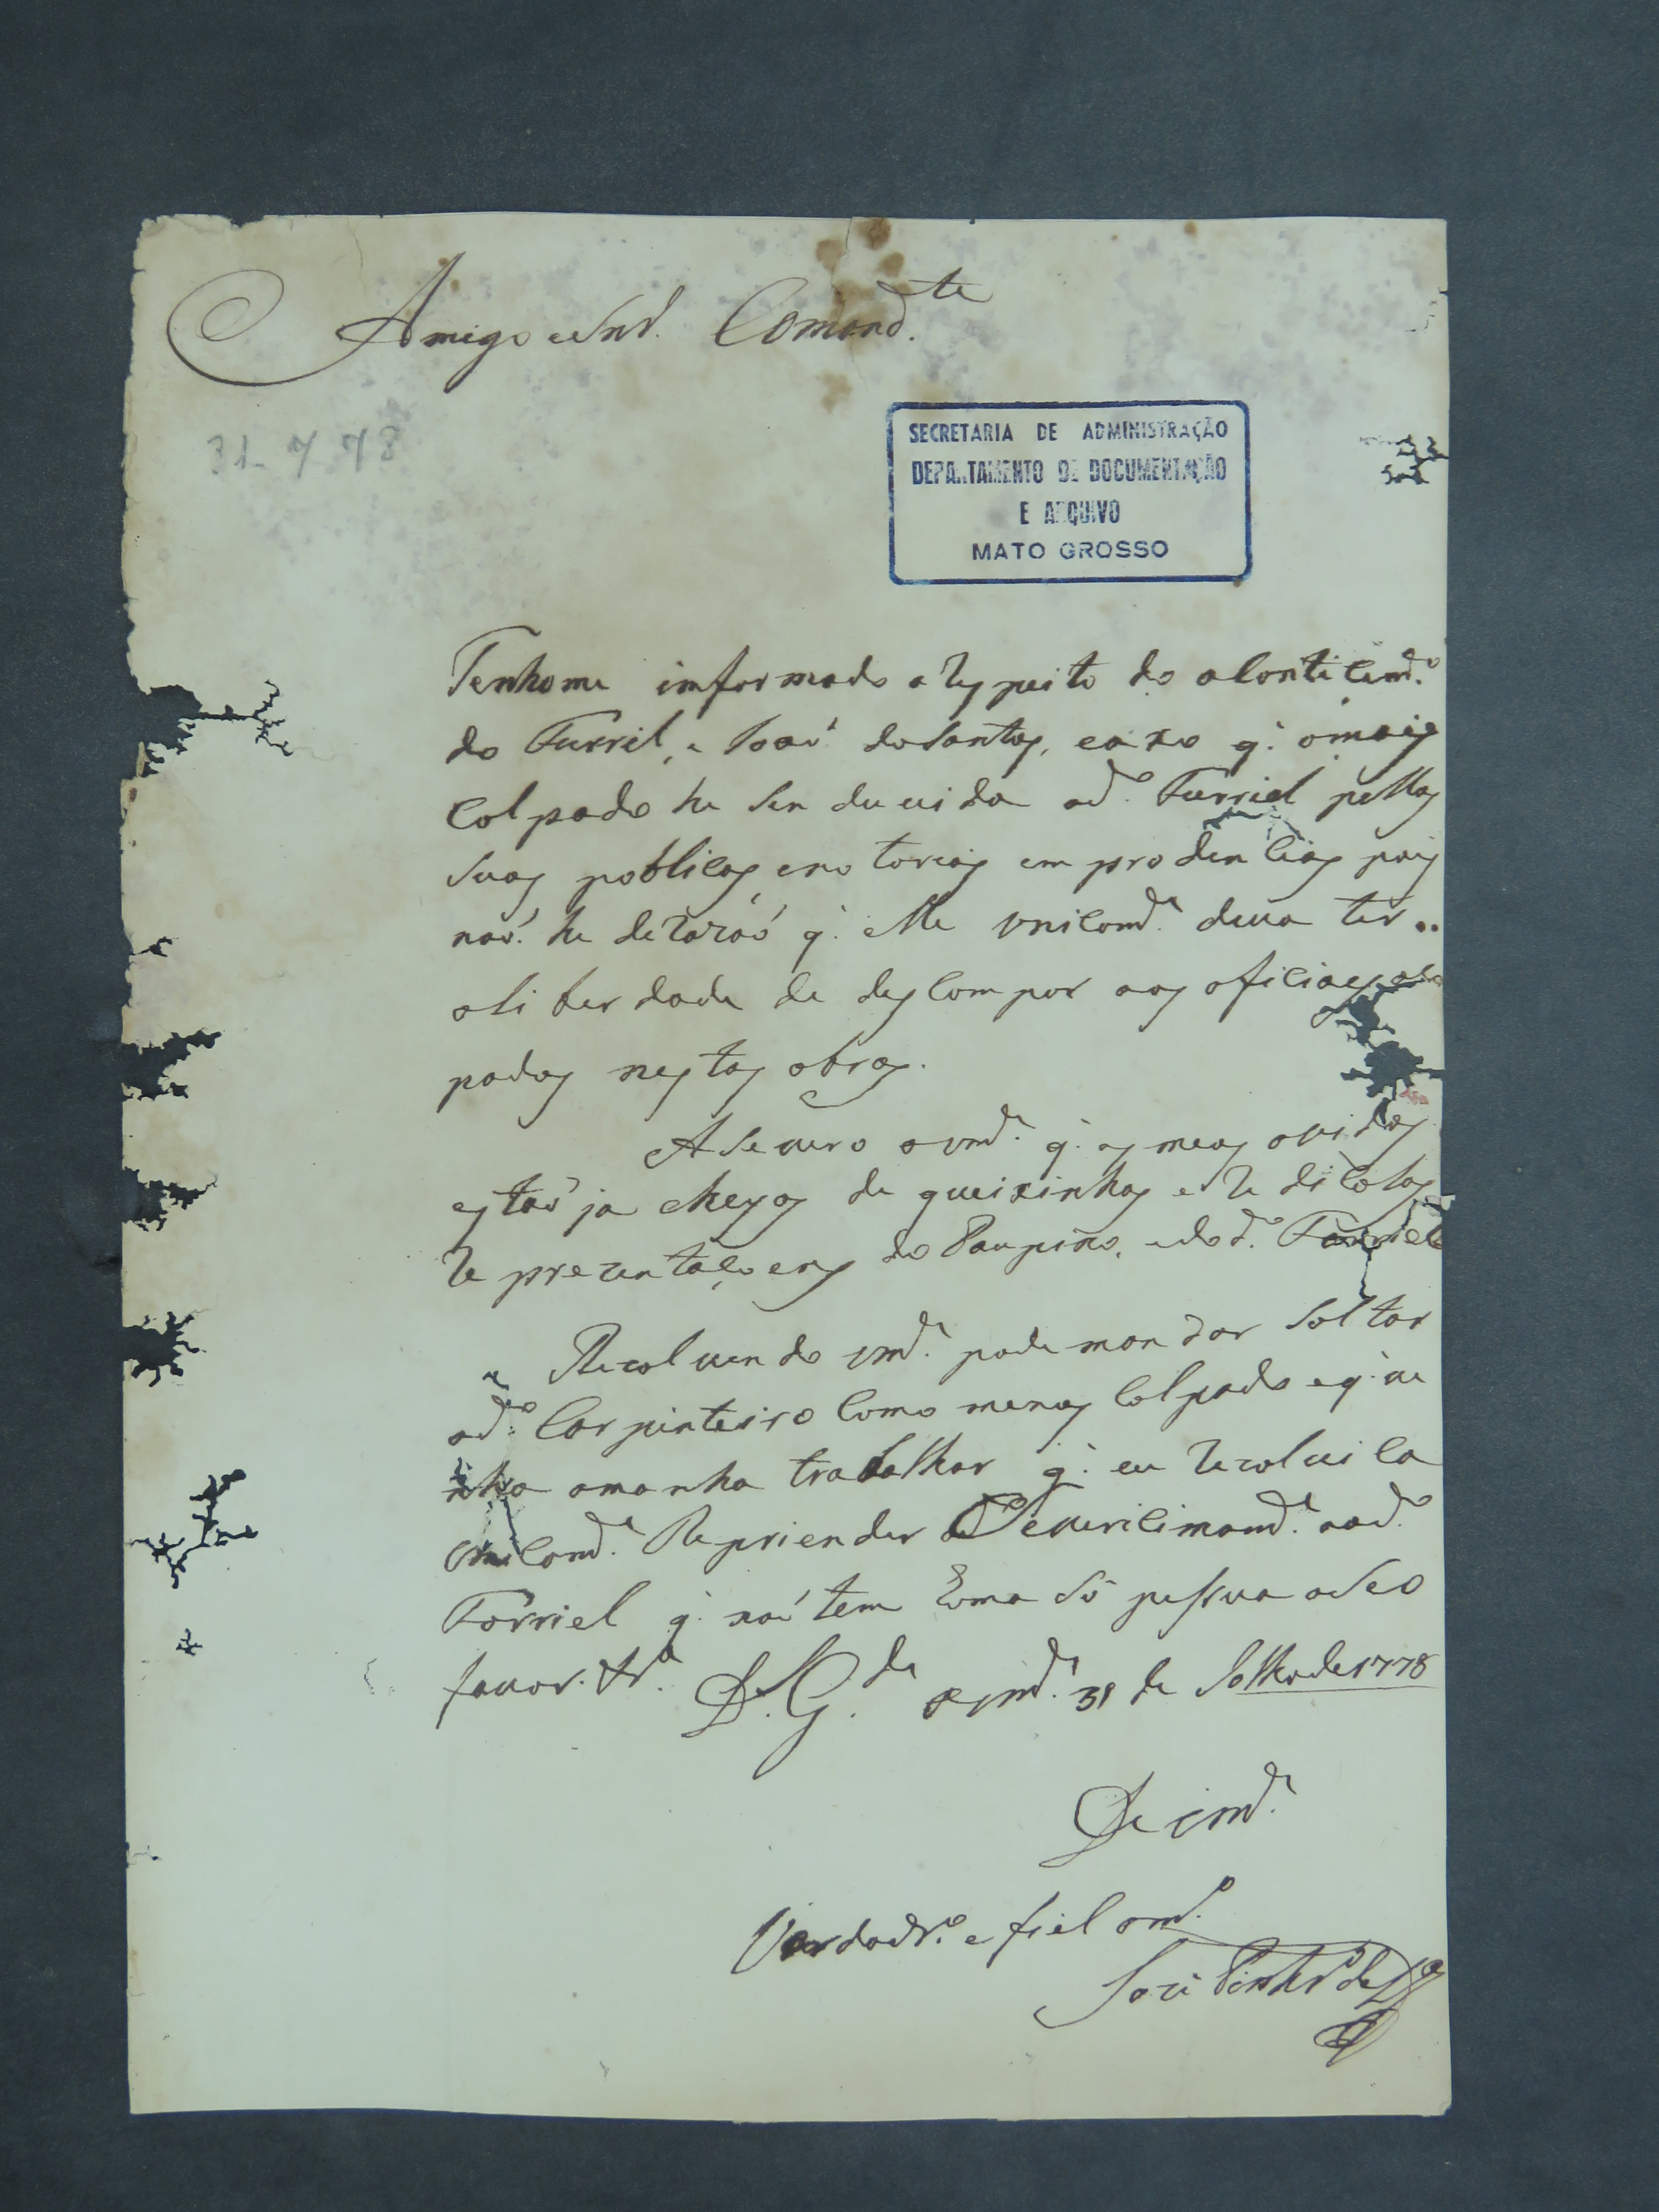 Amigo e Snr. Comand.te
31-7-78
SECRETARIA DE ADMINISTRAÇÃO
DEPARTAMENTO DE DOCUMENTAÇÃO
E ARQUIVO
MATO GROSSO
Tenhome imformado a Respeito do aConticimd.º
do Furriel, e Joaó dosSantos, eaxo q. ómais
Colpado he Sen duuida od.º Furriel pellas
Suas poblicas, enotorias emprodencias pois
naó. he deRazáó q. elle vnicamd.e deua ter..
aliberdade de desCompor aos ofiCiaes
pados nestas obras.
ASeuero a vmd.e q. os meos ouidos
estaó ja cheyos de queixinhas e Redicolas
Reprezentaçoens do Paupino, e do d.º Furriel
Rezoluendo vmd.e pode mandar Soltar
od.º Carpinteiro Como menos Colpado e q. ue
nha amanha trabalhar q. eu Rezolui la
vnicamd.e Repriender Seuericimamd.e aod.º
Forriel q. naó tem huma Só pessua aSeo
fauor. D. G.de a vmd.e 31 de Julho de 1778
De vmd.e
Verdadr.º e fiel am.º
Joze Pinhr.º de